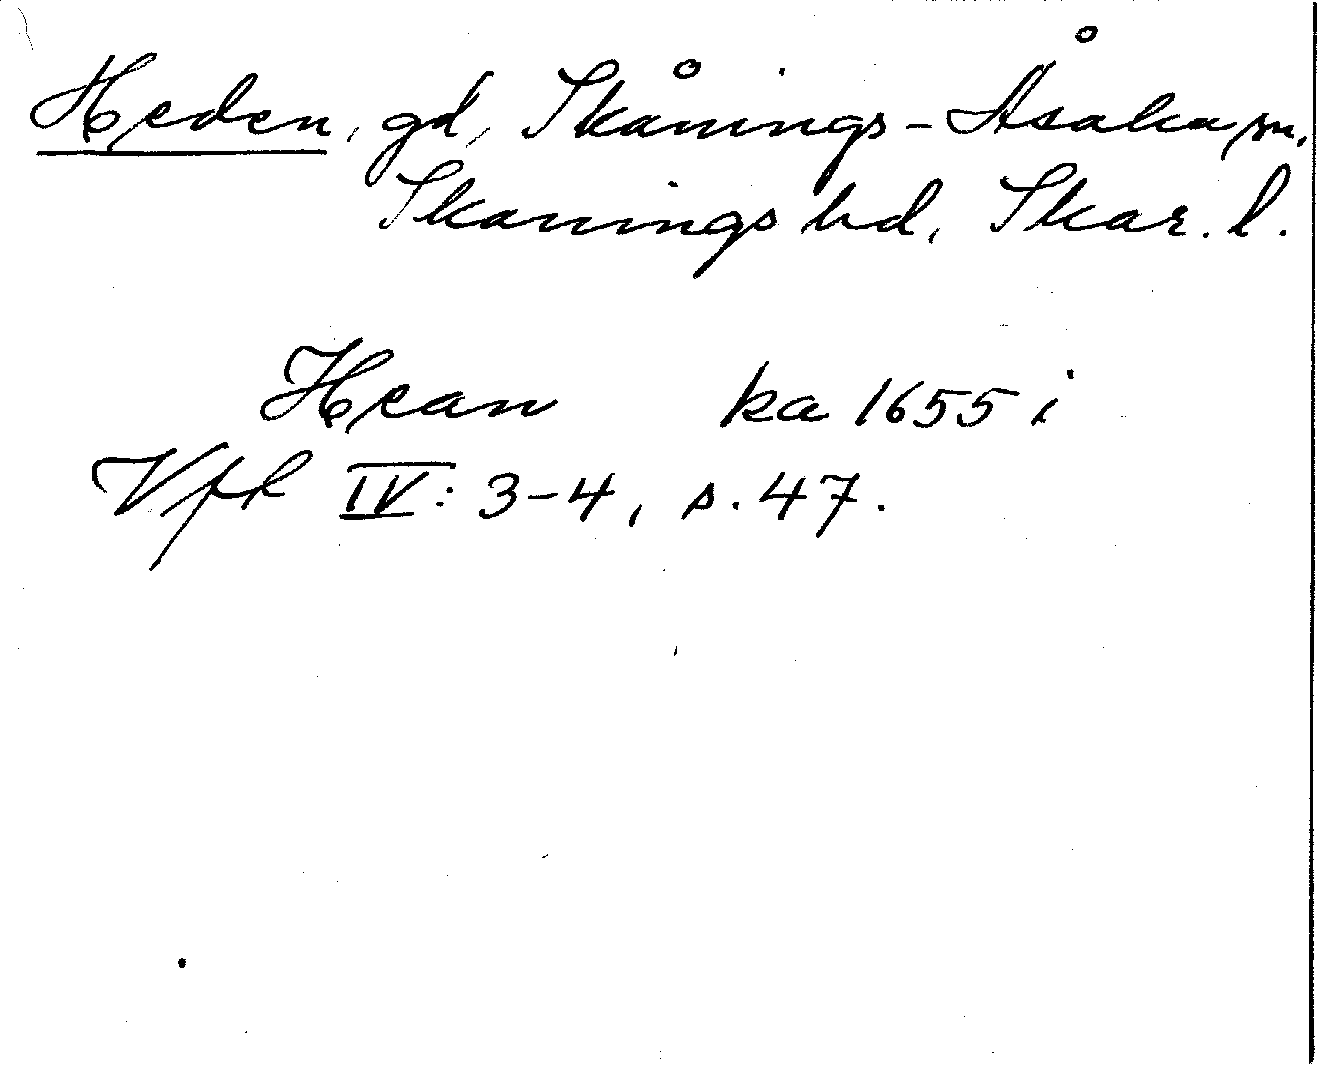 Heden, gd, Skånings-Åsaka sn,
Skånings hd, Skar. l.
Hean ka 1655 i
Vfk IV: 3-4, s. 47.